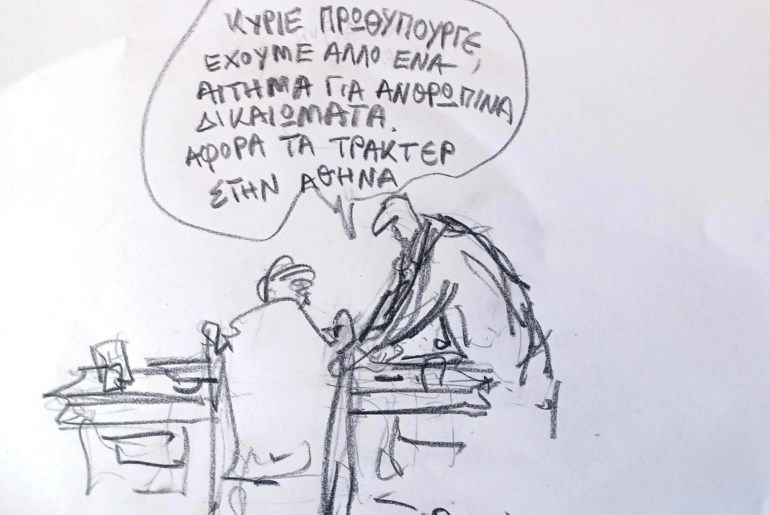 ΚΥΡΙΕ ΠΡΩΘΥΠΟΥΡΓΕ
ΕΧΟΥΜΕ ΑΛΛΟ ΕΝΑ,
ΑΙΤΗΜΑ ΓΙΑ ΑΝΘΡΩΠΙΝΑ
ΔΙΚΑΙΩΜΑΤΑ.
ΑΦΟΡΑ ΤΑ ΤΡΑΚΤΕΡ
ΣΤΗΝ ΑΘΗΝΑ